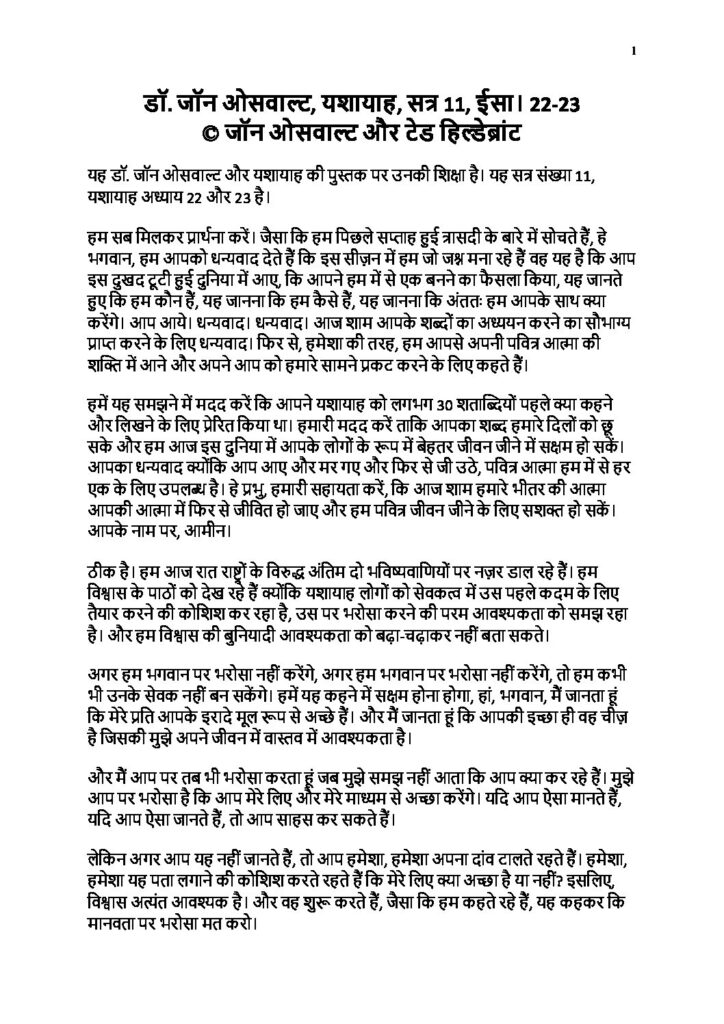 1
डॉ. जॉन ओसवाल्ट, यशायाह, सत्र 11, ईसा। 22-23
© जॉन ओसवाल्ट और टेड हिल्डेब्रांट
यह डॉ. जॉन ओसवाल्ट और यशायाह की पुस्तक पर उनकी शिक्षा है। यह सत्र संख्या 11,
यशायाह अध्याय 22 और 23 है।
हम सब मिलकर प्रार्थना करें। जैसा कि हम पिछले सप्ताह हुई त्रासदी के बारे में सोचते हैं, हे
भगवान, हम आपको धन्यवाद देते हैं कि इस सीज़न में हम जो जश्न मना रहे हैं वह यह है कि आप
इस दुखद टूटी हुई दुनिया में आए, कि आपने हम में से एक बनने का फैसला किया, यह जानते
हुए कि हम कौन हैं, यह जानना कि हम कैसे हैं, यह जानना कि अंततः हम आपके साथ क्या
करेंगे। आप आये। धन्यवाद। धन्यवाद। आज शाम आपके शब्दों का अध्ययन करने का सौभाग्य
प्राप्त करने के लिए धन्यवाद। फिर से, हमेशा की तरह, हम आपसे अपनी पवित्र आत्मा की
शक्ति में आने और अपने आप को हमारे सामने प्रकट करने के लिए कहते हैं।
हमें यह समझने में मदद करें कि आपने यशायाह को लगभग 30 शताब्दियों पहले क्या कहने
और लिखने के लिए प्रेरित किया था। हमारी मदद करें ताकि आपका शब्द हमारे दिलों को छू
सके और हम आज इस दुनिया में आपके लोगों के रूप में बेहतर जीवन जीने में सक्षम हो सकें।
आपका धन्यवाद क्योंकि आप आए और मर गए और फिर से जी उठे, पवित्र आत्मा हम में से हर
एक के लिए उपलब्ध है। हे प्रभु, हमारी सहायता करें, कि आज शाम हमारे भीतर की आत्मा
आपकी आत्मा में फिर से जीवित हो जाए और हम पवित्र जीवन जीने के लिए सशक्त हो सकें।
आपके नाम पर, आमीन।
ठीक है। हम आज रात राष्ट्रों के विरुद्ध अंतिम दो भविष्यवाणियों पर नज़र डाल रहे हैं। हम
विश्वास के पाठों को देख रहे हैं क्योंकि यशायाह लोगों को सेवकत्व में उस पहले कदम के लिए
तैयार करने की कोशिश कर रहा है, उस पर भरोसा करने की परम आवश्यकता को समझ रहा
है। और हम विश्वास की बुनियादी आवश्यकता को बढ़ा-चढ़ाकर नहीं बता सकते।
अगर हम भगवान पर भरोसा नहीं करेंगे, अगर हम भगवान पर भरोसा नहीं करेंगे, तो हम कभी
भी उनके सेवक नहीं बन सकेंगे। हमें यह कहने में सक्षम होना होगा, हां, भगवान, मैं जानता हूं
कि मेरे प्रति आपके इरादे मूल रूप से अच्छे हैं। और मैं जानता हूं कि आपकी इच्छा ही वह चीज़
है जिसकी मुझे अपने जीवन में वास्तव में आवश्यकता है।
और मैं आप पर तब भी भरोसा करता हूं जब मुझे समझ नहीं आता कि आप क्या कर रहे हैं। मुझे
आप पर भरोसा है कि आप मेरे लिए और मेरे माध्यम से अच्छा करेंगे। यदि आप ऐसा मानते हैं,
यदि आप ऐसा जानते हैं, तो आप साहस कर सकते हैं।
लेकिन अगर आप यह नहीं जानते हैं, तो आप हमेशा, हमेशा अपना दांव टालते रहते हैं। हमेशा,
हमेशा यह पता लगाने की कोशिश करते रहते हैं कि मेरे लिए क्या अच्छा है या नहीं? इसलिए,
विश्वास अत्यंत आवश्यक है। और वह शुरू करते हैं, जैसा कि हम कहते रहे हैं, यह कहकर कि
मानवता पर भरोसा मत करो।